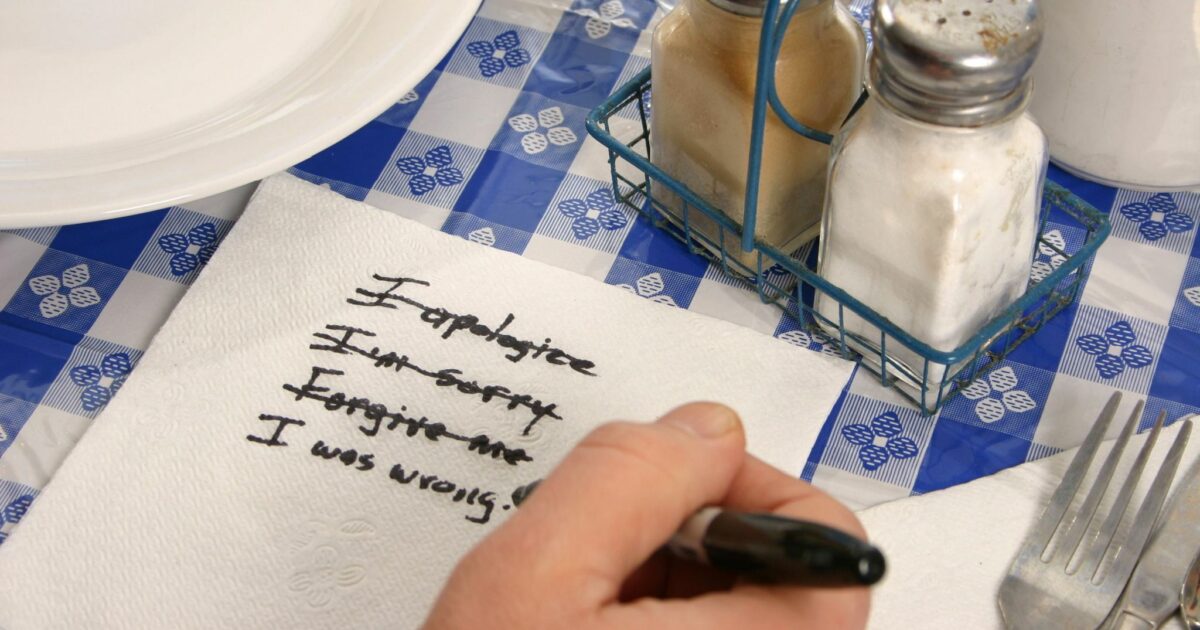 I apologize
I'm sorry
Forgive me
I was wrong.